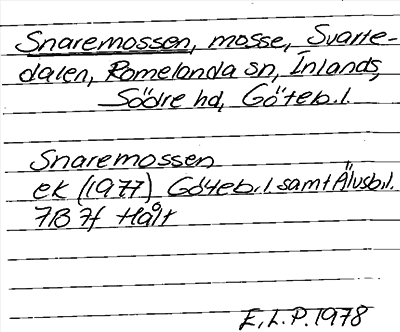 Snaremossen, mosse, Svarte-
dalen, Romelanda sn, Inlands
Södre hd, Göteb. l.
Snaremossen
ek (1977) Göteb. l. samt Älvsb. l.
7B 7f Hålt
E. L. P. 1978